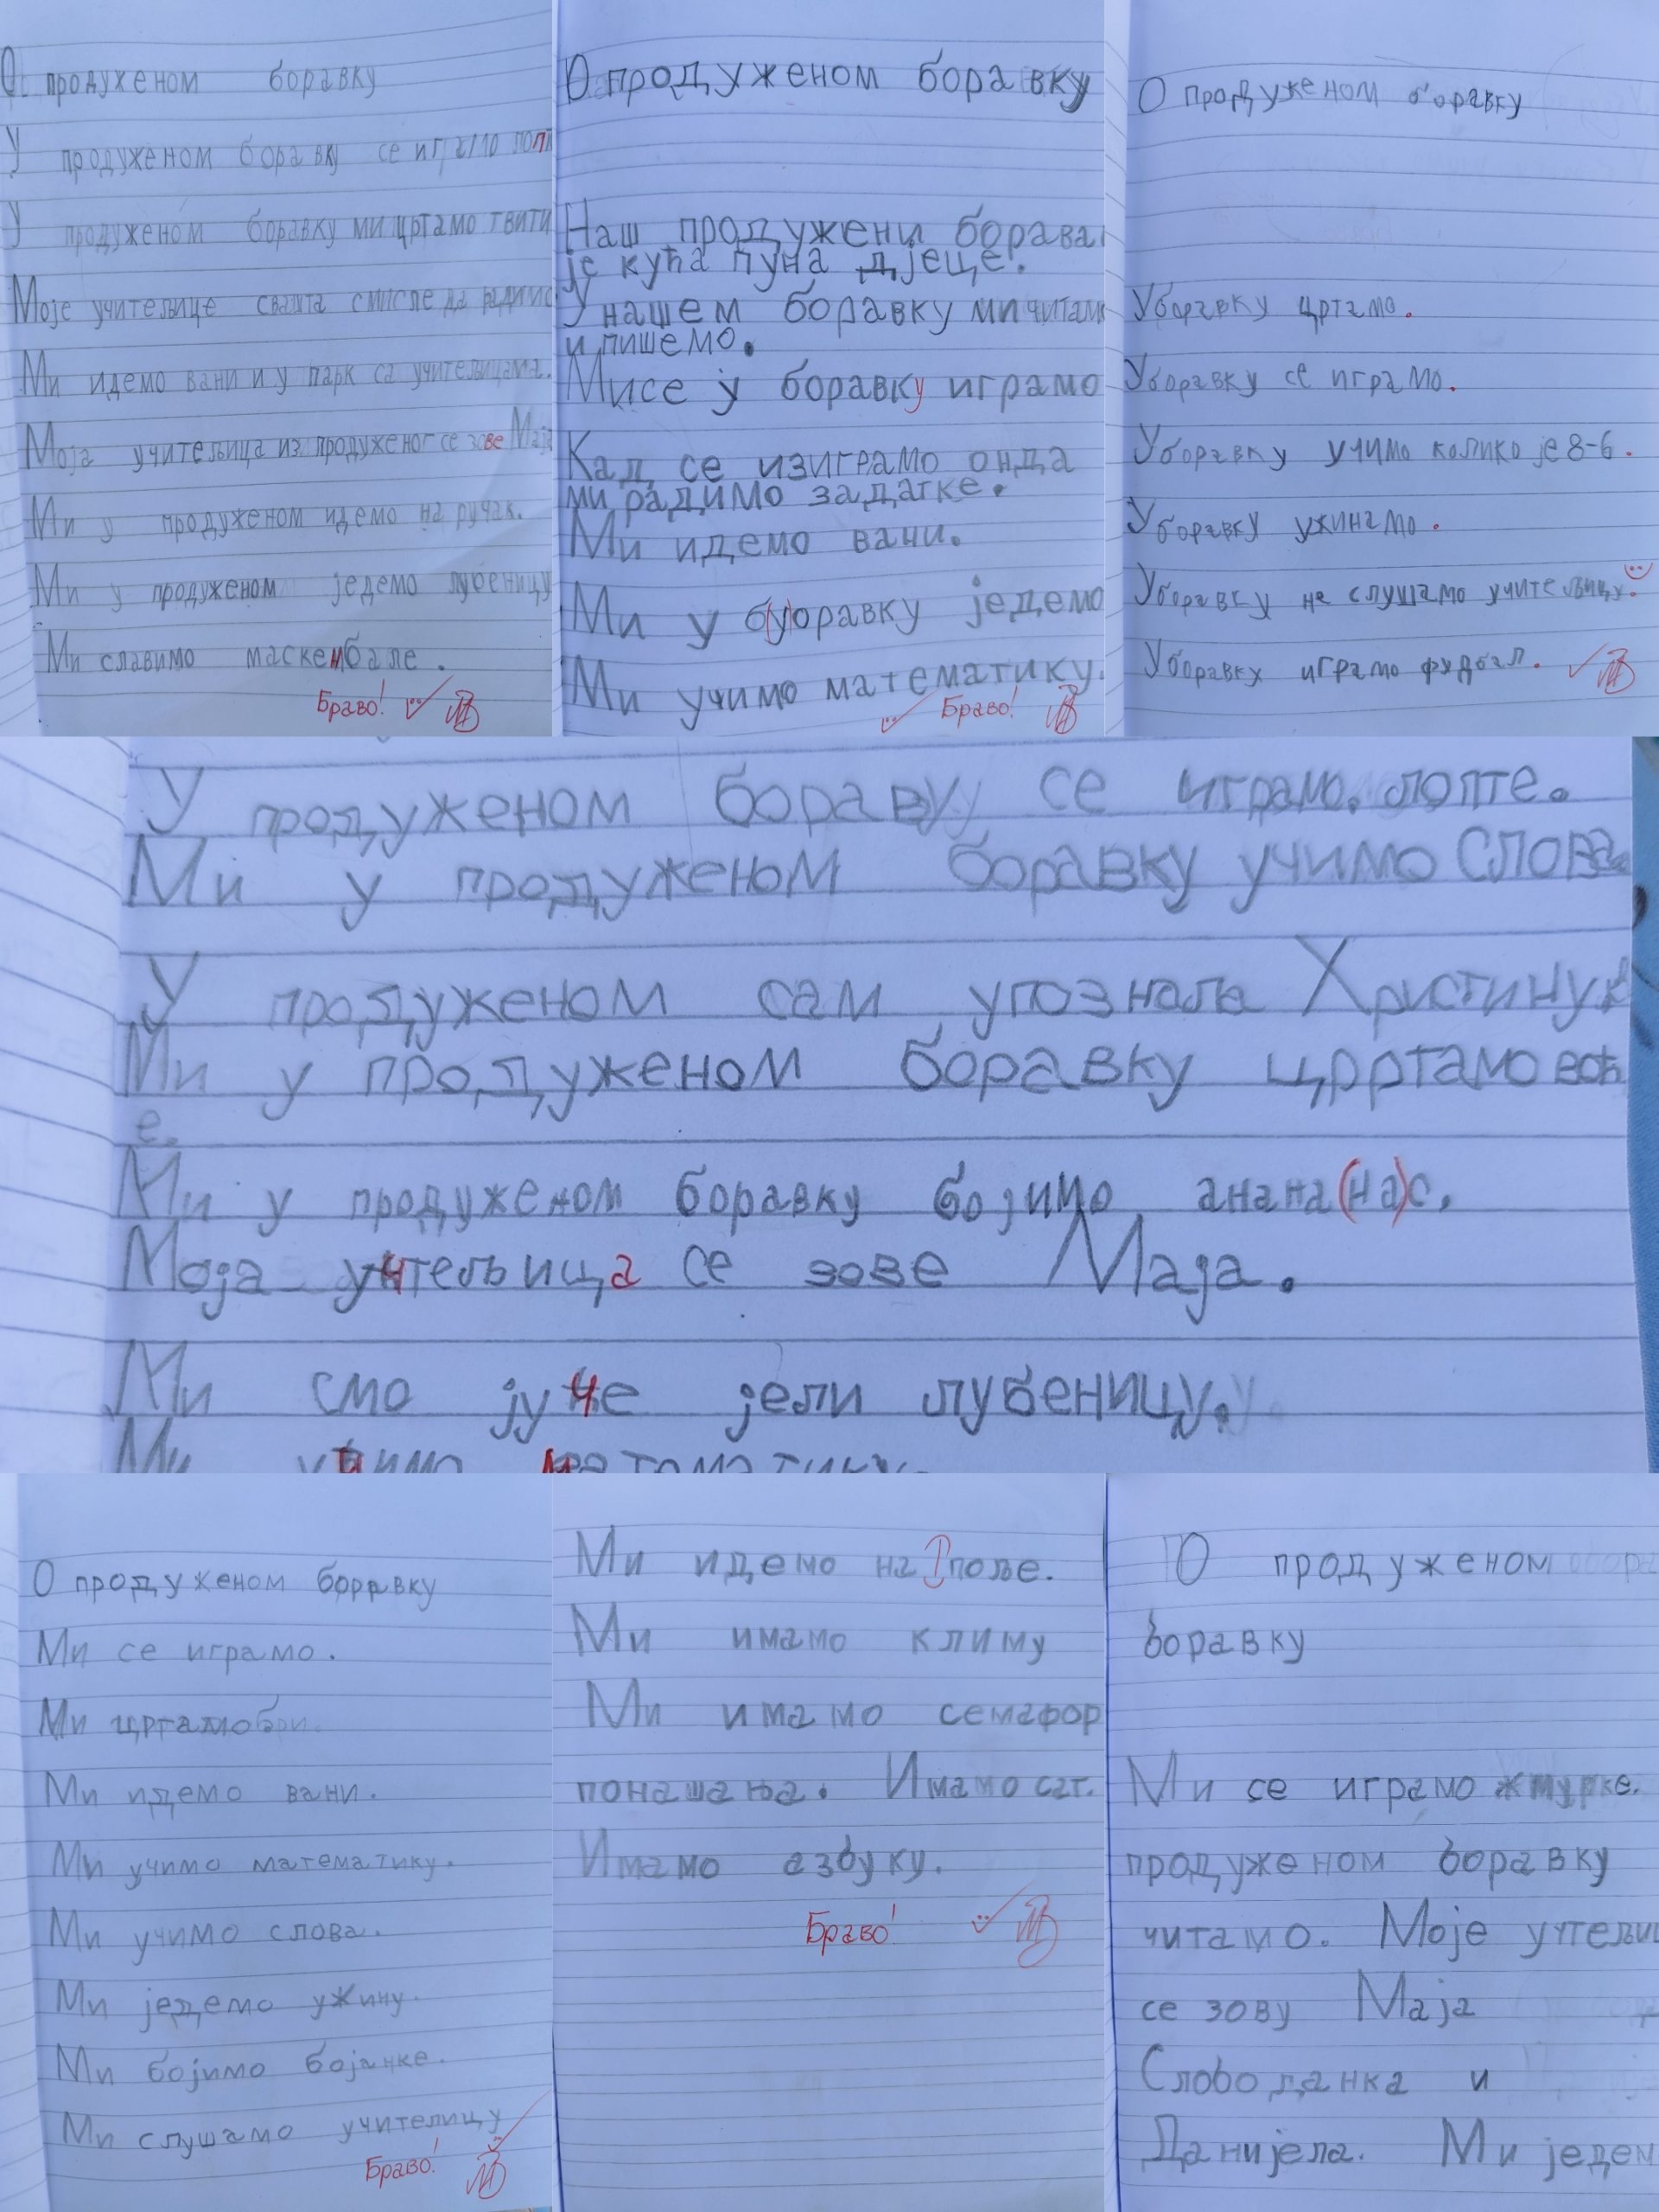 О продуженом боравку
У продуженом боравку се играмо
У продуженом боравку ми цртамо
Моје учитељице свашта смисле да радимо
Ми идемо вани и у парк са учитељицама.
Моја учитељица из продуженог се зове Маја
Ми у продуженом идемо на ручак.
Ми у продуженом једемо лубеницу
Ми славимо маскенбале.
Браво!
О продуженом боравку
Наш продужени борава
је кућа пуна дјеце.
У нашем боравку ми читамо
и пишемо.
Ми се у боравку играмо
Кад се изиграмо онда
ми радимо задатке.
Ми идемо вани.
Ми у б(у)оравку једемо
Ми учимо математику.
Браво!
О продуженом боравку
У боравку цртамо.
У боравку се играмо.
У боравку учимо колико је 8-6.
У боравку ужинамо.
У боравку не слушамо учитељицу.
У боравку играмо фудбал.
У продуженом бораву се играмо. лопте.
Ми у продуженом боравку учимо Слова
У продуженом сам упознала Христину
Ми у продуженом боравку црртамо воћ
е.
Ми у продуженом боравку бојимо анана(на)с.
Моја учтељица се зове Маја.
Ми смо јуче јели лубеницу.
Ми учимо
О продуженом борравку
Ми се играмо.
Ми цртамо
Ми идемо вани.
Ми учимо математику.
Ми учимо слова.
Ми једемо ужину.
Ми бојимо бојанке.
Ми слушамо учителицу
Браво!
Ми идемо на поље.
Ми имамо климу
Ми имамо семафор
понашања. Имамо сат.
Имамо азбуку.
Браво!
О продуженом
боравку
Ми се играмо жмурке.
продуженом боравку
читамо. Моје учтељи
се зову Маја
Слободанка и
Данијела. Ми једем